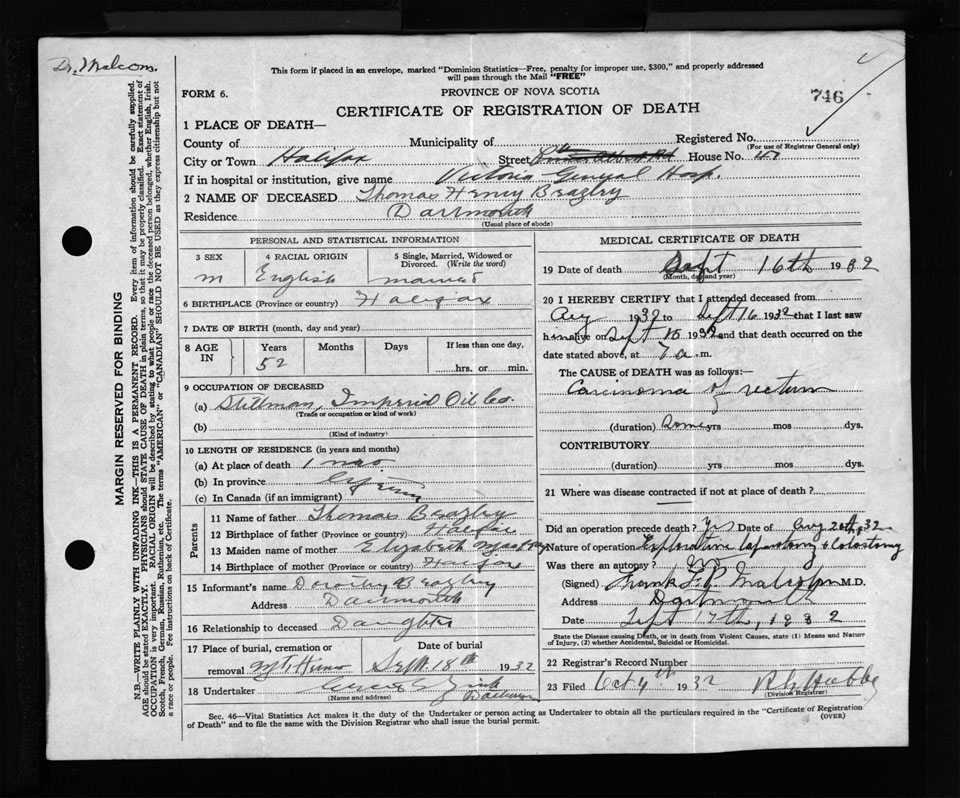 Dr. Malcom.
This form if placed in an envelope, marked "Dominion Statistics—Free, penalty for improper use, $300," and properly addressed
will pass through the Mail "FREE"
FORM 6.
PROVINCE OF NOVA SCOTIA
746
CERTIFICATE OF REGISTRATION OF DEATH
1 PLACE OF DEATH—
County of Municipality of Registered No.
(For use of Registrar General only)
City or Town Halifax Street House No. 47
If in hospital or institution, give name Victoria General Hosp.
2 NAME OF DECEASED Thomas Henry Brazley
Residence Dartmouth
(Usual place of abode)
PERSONAL AND STATISTICAL INFORMATION
3 SEX 4 RACIAL ORIGIN 5 Single, Married, Widowed or Divorced. (Write the word)
m English married
6 BIRTHPLACE (Province or country) Halifax
7 DATE OF BIRTH (month, day and year)
8 AGE IN Years Months Days If less than one day,
52 hrs. or min.
9 OCCUPATION OF DECEASED
(a) Stillman, Imperial Oil Co.
(Trade or occupation or kind of work)
(b)
(Kind of industry)
10 LENGTH OF RESIDENCE (in years and months)
(a) At place of death 1 mo
(b) In province Lifetime
(c) In Canada (if an immigrant)
Parents
11 Name of father Thomas Brazley
12 Birthplace of father (Province or country) Halifax
13 Maiden name of mother Elizabeth
14 Birthplace of mother (Province or country) Halifax
15 Informant's name Dorothy Brazley
Address Dartmouth
16 Relationship to deceased Daughter
17 Place of burial, cremation or Date of burial
removal Mt. Hermon Sept. 18th 1932
18 Undertaker
(Name and address)
MEDICAL CERTIFICATE OF DEATH
19 Date of death Sept 16th 1932
(Month, day and year)
20 I HEREBY CERTIFY that I attended deceased from
Aug 1932 to Sept 16 1932 that I last saw
him alive on Sept 15 1932 and that death occurred on the
date stated above, at 7 a.m.
The CAUSE of DEATH was as follows:—
Carcinoma of rectum
(duration) Some yrs mos dys.
CONTRIBUTORY
(duration) yrs mos dys.
21 Where was disease contracted if not at place of death?
Did an operation precede death? Yes Date of Aug 20th, 32
Nature of operation Explorative laparotomy & Colostomy
Was there an autopsy? no
(Signed) Malcolm M.D.
Address Dartmouth
Date Sept 17th, 1932
State the Disease causing Death, or in death from Violent Causes, state (1) Means and Nature
of Injury, (2) whether Accidental, Suicidal or Homicidal.
22 Registrar's Record Number
23 Filed Oct 4th 1932
(Division Registrar)
Sec. 46—Vital Statistics Act makes it the duty of the Undertaker or person acting as Undertaker to obtain all the particulars required in the "Certificate of Registration
of Death" and to file the same with the Division Registrar who shall issue the burial permit.
(OVER)
MARGIN RESERVED FOR BINDING
N.B.—WRITE PLAINLY WITH UNFADING INK—THIS IS A PERMANENT RECORD. Every item of information should be carefully supplied.
AGE should be stated EXACTLY. PHYSICIANS should STATE CAUSE OF DEATH in plain terms, so that it may be properly classified. Exact statement of
OCCUPATION is very important. RACIAL ORIGIN will be described by stating to what people or race the deceased person belonged, whether English, Irish,
Scotch, French, German, Russian, Ruthenian, etc. The terms "AMERICAN" or "CANADIAN" SHOULD NOT BE USED as they express citizenship but not
a race or people. Fee instructions on back of Certificate.